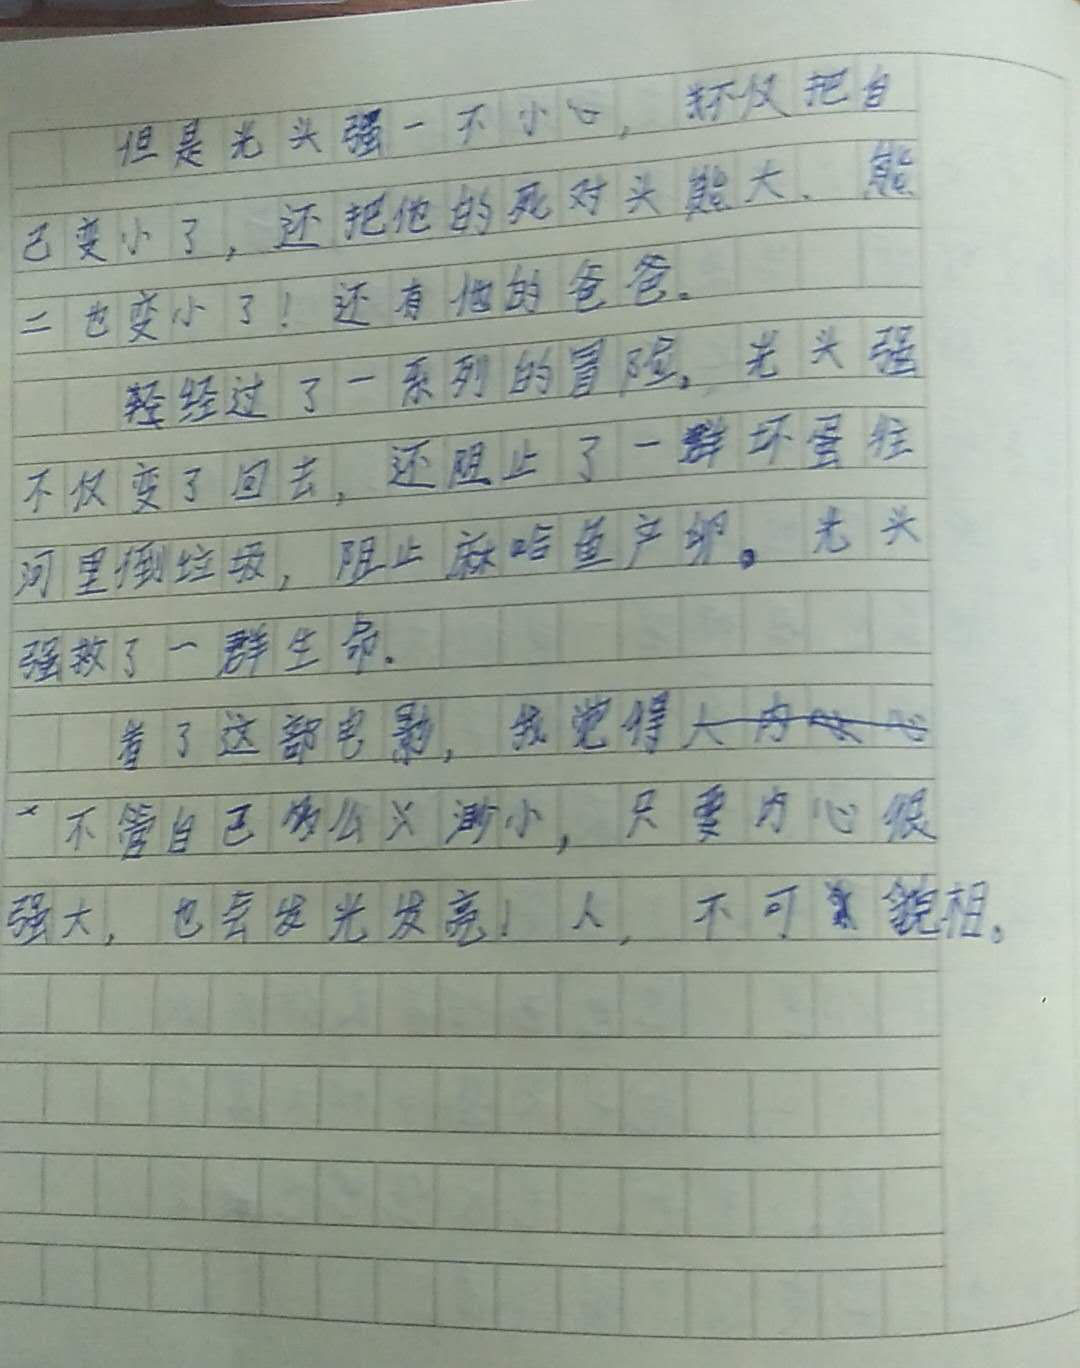 但是光头强一不小心，不仅把自
己变小了，还把他的死对头熊大、熊
二也变小了！还有他的爸爸。
经过了一系列的冒险。光头强
不仅变了回去，还阻止了一群坏蛋往
河里倒垃圾，阻止麻哈鱼产卵。光头
强救了一群生命。
看了这部电影，我觉得人内心
不管自己多么渺小，只要内心很
强大，也会发光发亮！人，不可貌相。